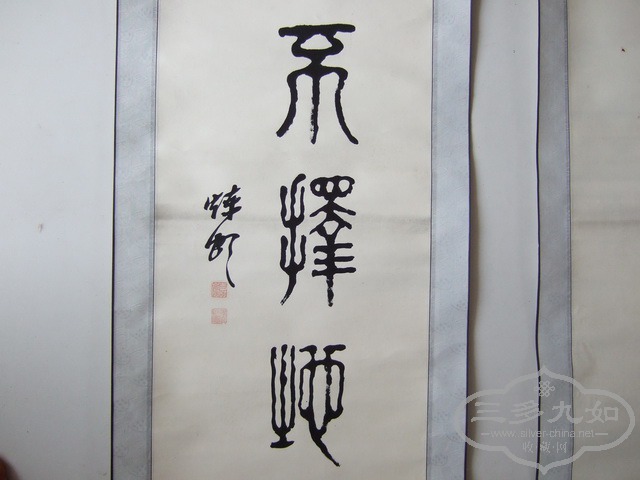 不擇地
三多九如
www.miver-china.net
收藏·网